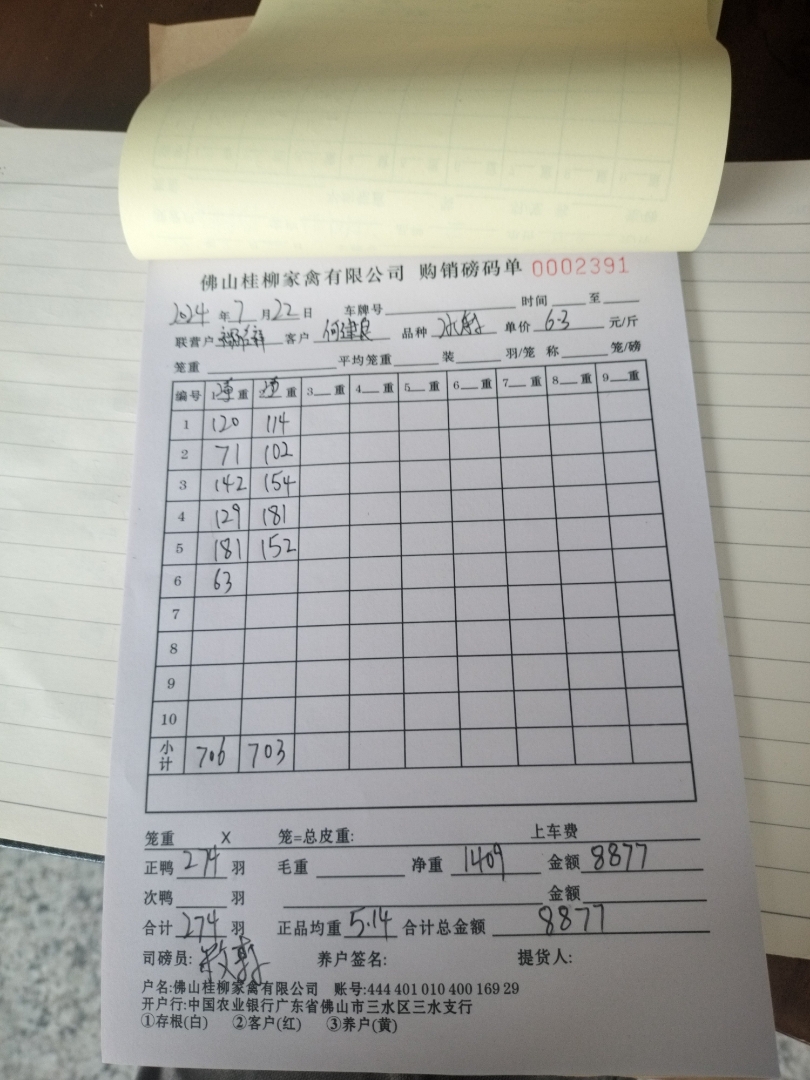 佛山桂柳家禽有限公司 购销磅码单 0002391
2024 年 7 月 22 日 车牌号 时间 至
联营户 客户 何建良 品种 水鸭 单价 6.3 元/斤
笼重 平均笼重 装 羽/笼 称 笼/磅
编号 1 重 重 3 重 4 重 5 重 6 重 7 重 8 重 9 重
1 120 114
2 71 102
3 142 154
4 129 181
5 181 152
6 63
7
8
9
10
小计 706 703
笼重 X 笼=总皮重: 上车费
正鸭 274 羽 毛重 净重 1409 金额 8877
次鸭 羽 金额
合计 274 羽 正品均重 5.14 合计总金额 8877
司磅员: 养户签名: 提货人:
户名:佛山桂柳家禽有限公司 账号:444 401 010 400 169 29
开户行:中国农业银行广东省佛山市三水区三水支行
①存根(白) ②客户(红) ③养户(黄)